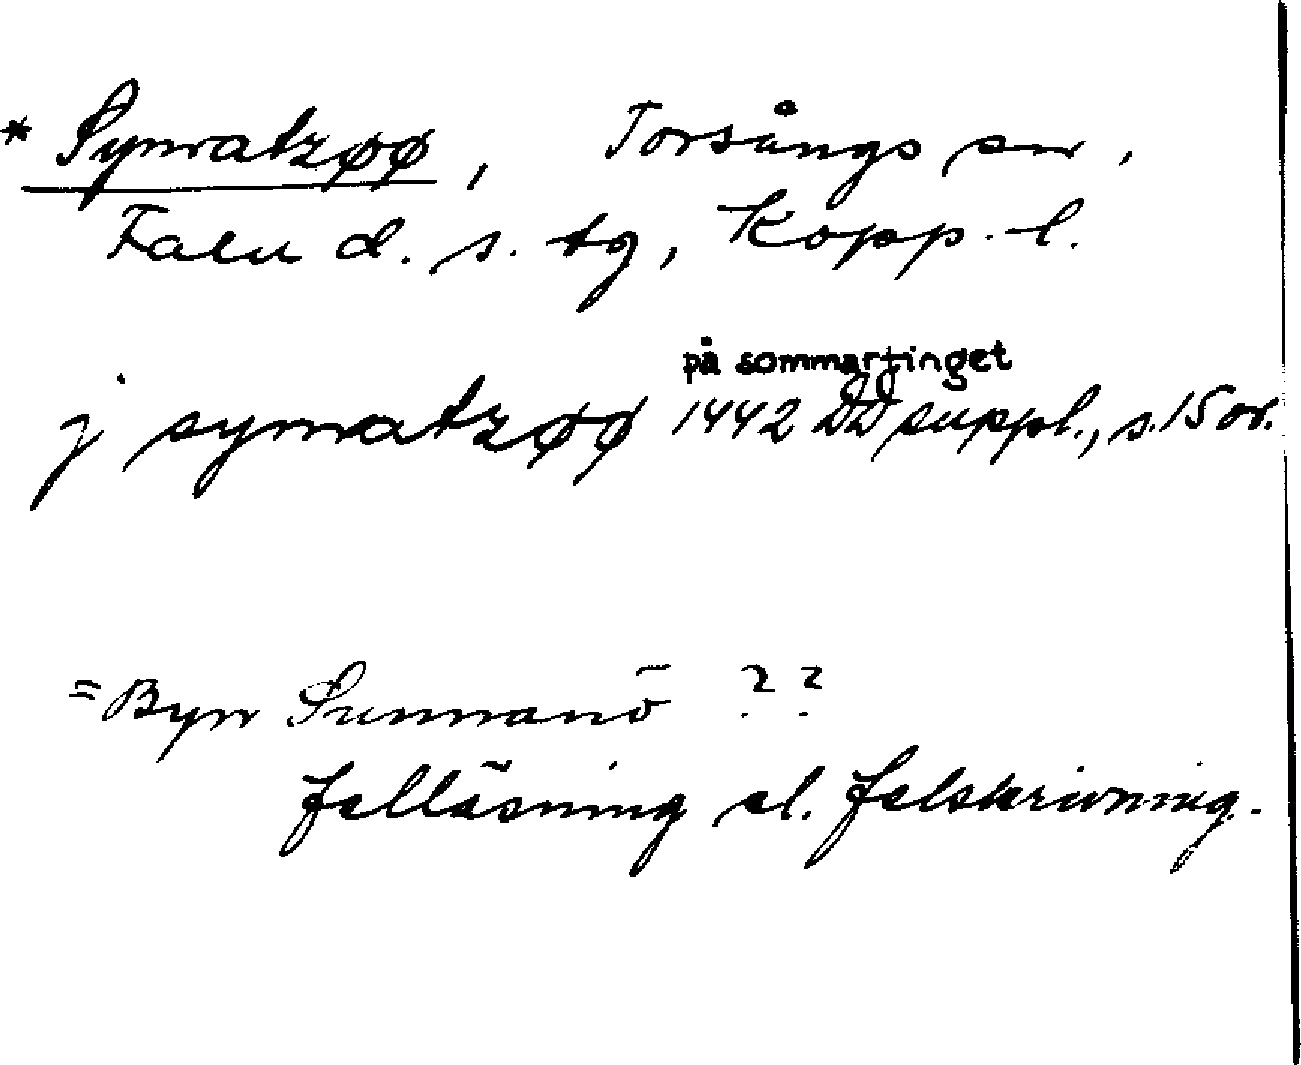 * Synratzøø, Torsångs sn,
Falu d. s. tg, Kopp. l.
på sommartinget
j synratzøø 1442 DD suppl., s. 15 or.
= Byn Sunnanö ??
felläsning el. felskrivning.